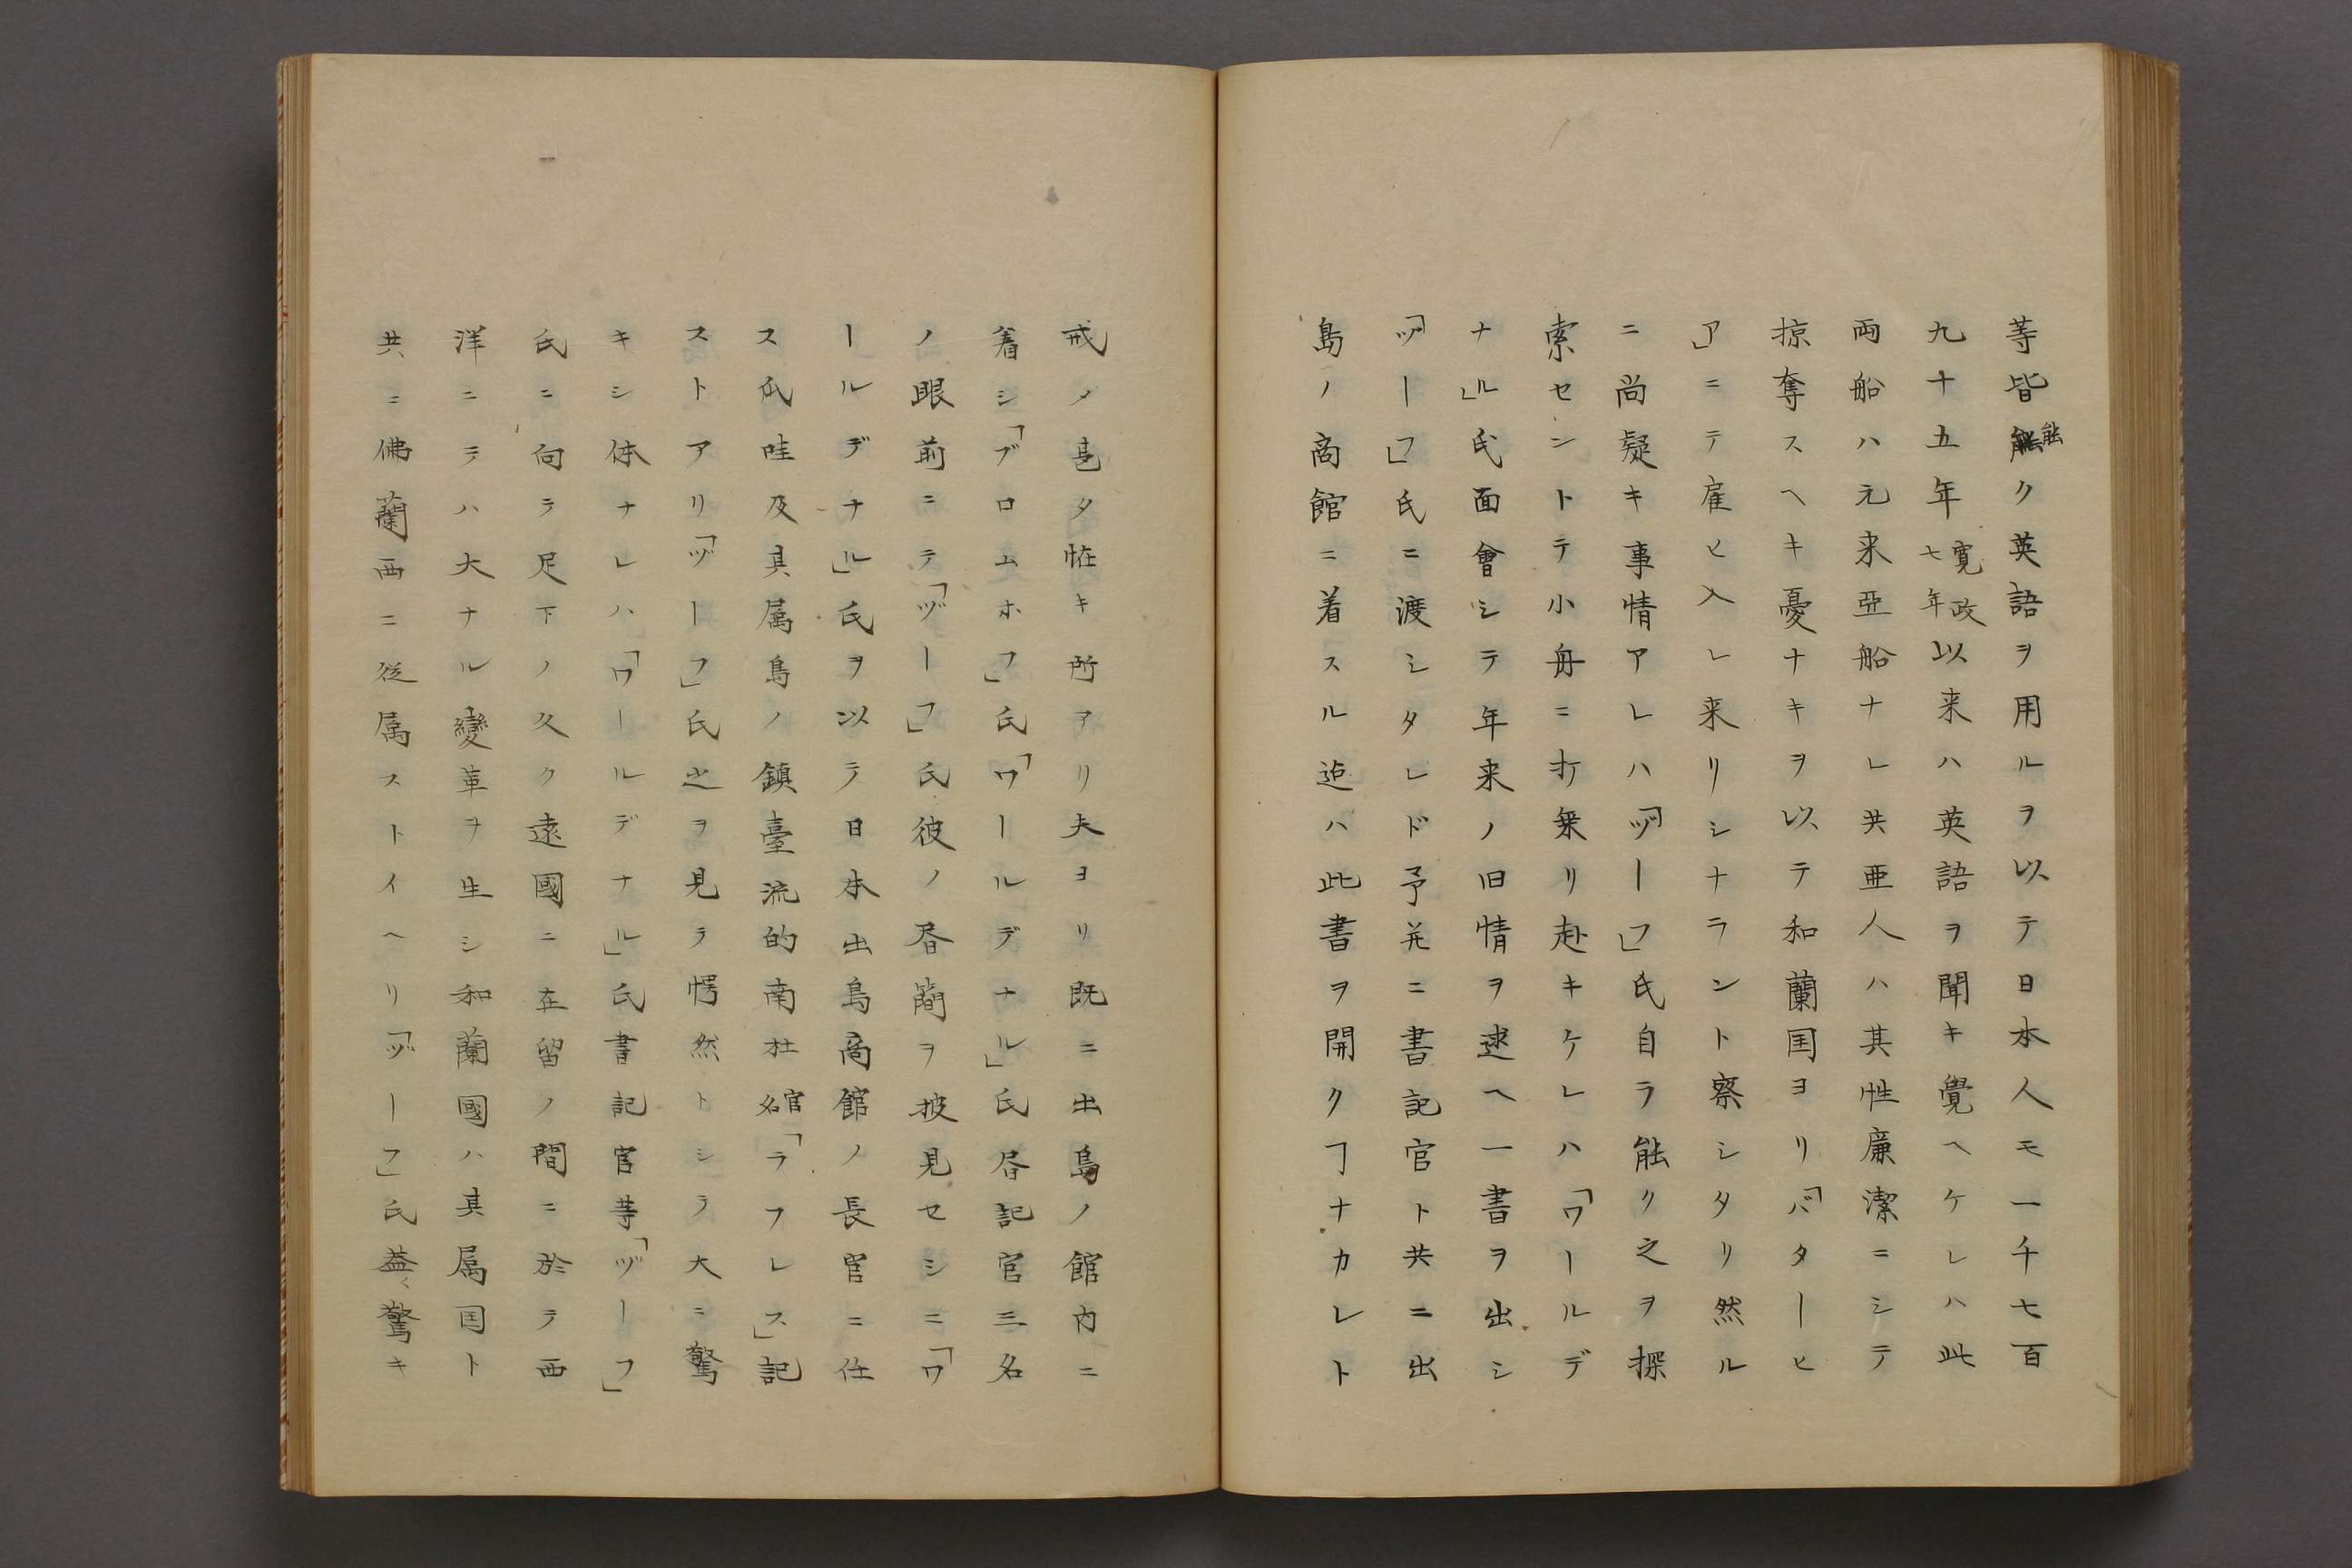 等皆能ク英語ヲ用ルヲ以テ日本人モ一千七百
九十五年寛政七年以来ハ英語ヲ聞キ覺ヘケレハ此
両船ハ元来亞船ナレ共亜人ハ其性廉潔ニシテ
掠奪スヘキ憂ナキヲ以テ和蘭国ヨリ「バターヒ
ア」ニテ雇ヒ入レ来リシナラント察シタリ然ル
ニ尚疑キ事情アレハ「ヅーフ」氏自ラ能ク之ヲ探
索セントテ小舟ニ打乗リ赴キケレハ「ワールデ
ナル」氏面會シテ年来ノ旧情ヲ逑ヘ一書ヲ出シ
「ヅーフ」氏ニ渡シタレド予并ニ書記官ト共ニ出
島ノ商館ニ着スル迠ハ此書ヲ開クヿナカレト
戒ノ甚タ恠キ所アリ夫ヨリ既ニ出島ノ館内ニ
着シ「ブロムホフ」氏「ワールデナル」氏昏記官三名
ノ眼前ニテ「ヅーフ」氏彼ノ昏簡ヲ披見セシニ「ワ
ールデナル」氏ヲ以テ日本出島商館ノ長官ニ任
ス爪哇及其属島ノ鎮臺流的南社官名「ラフレス」記
ストアリ「ヅーフ」氏之ヲ見テ愕然トシテ大ニ驚
キシ体ナレハ「ワールデナル」氏書記官等「ヅーフ」
氏ニ向テ足下ノ久ク遠國ニ在留ノ間ニ於テ西
洋ニテハ大ナル變革ヲ生シ和蘭國ハ其属国ト
共ニ佛蘭西ニ從属ストイヘリ「ヅーフ」氏益々驚キ